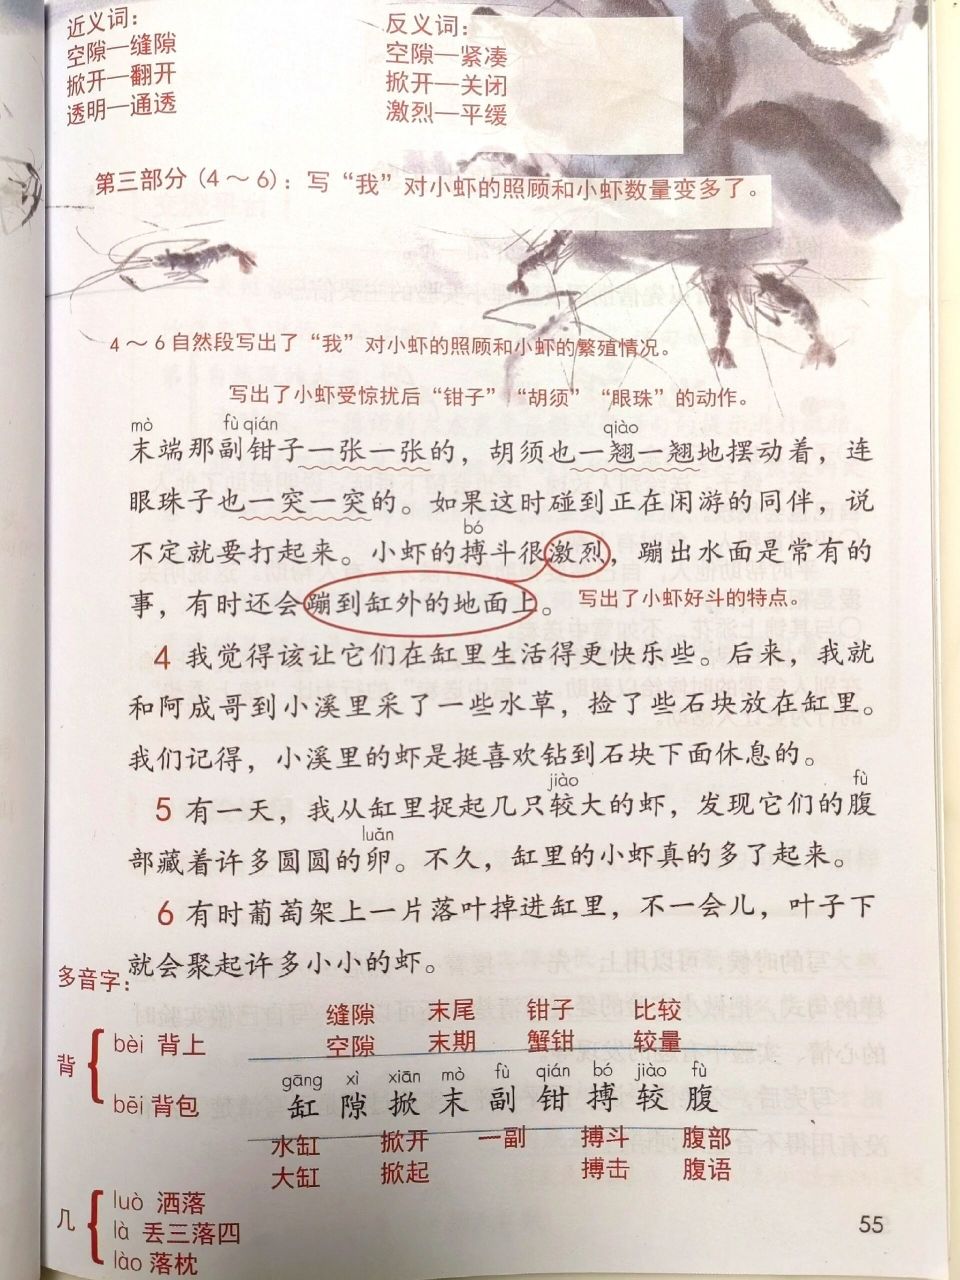 近义词：
空隙—缝隙
掀开—翻开
透明—通透
反义词：
空隙—紧凑
掀开—关闭
激烈—平缓
第三部分（4～6）：写“我”对小虾的照顾和小虾数量变多了。
4～6自然段写出了“我”对小虾的照顾和小虾的繁殖情况。
写出了小虾受惊扰后“钳子”“胡须”“眼珠”的动作。
mò fù qián qiào
末端那副钳子一张一张的，胡须也一翘一翘地摆动着，连
眼珠子也一突一突的。如果这时碰到正在闲游的同伴，说
bó
不定就要打起来。小虾的搏斗很激烈，蹦出水面是常有的
事，有时还会蹦到缸外的地面上。 写出了小虾好斗的特点。
4 我觉得该让它们在缸里生活得更快乐些。后来，我就
和阿成哥到小溪里采了一些水草，捡了些石块放在缸里。
我们记得，小溪里的虾是挺喜欢钻到石块下面休息的。
jiào fù
5 有一天，我从缸里捉起几只较大的虾，发现它们的腹
luǎn
部藏着许多圆圆的卵。不久，缸里的小虾真的多了起来。
6 有时葡萄架上一片落叶掉进缸里，不一会儿，叶子下
就会聚起许多小小的虾。
多音字：
背
bèi 背上
bēi 背包
缝隙 末尾 钳子 比较
空隙 末期 蟹钳 较量
gāng xì xiān mò fù qián bó jiào fù
缸 隙 掀 末 副 钳 搏 较 腹
水缸 掀开 一副 搏斗 腹部
大缸 掀起 搏击 腹语
几
luò 洒落
là 丢三落四
lào 落枕
55